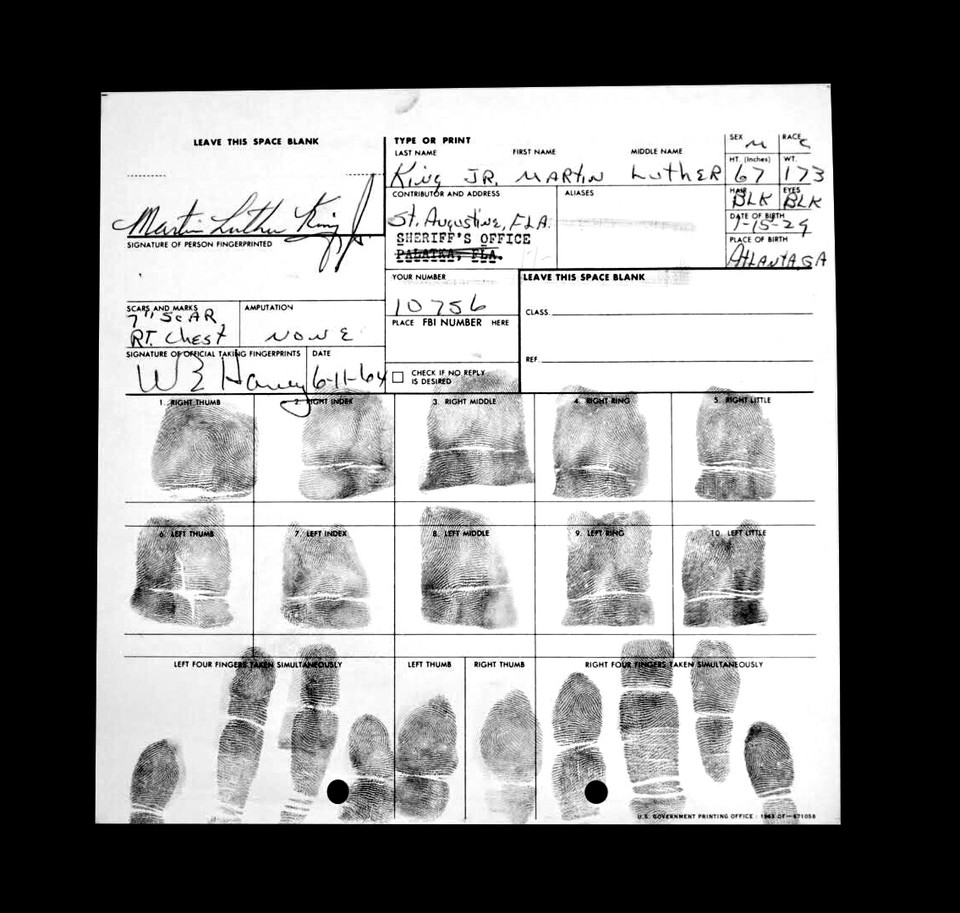 LEAVE THIS SPACE BLANK
TYPE OR PRINT
LAST NAME FIRST NAME MIDDLE NAME
King JR. MARTIN LutHER
SEX M
RACE
HT. (Inches) 67
WT. 173
HAIR BLK
EYES BLK
DATE OF BIRTH
1-15-29
PLACE OF BIRTH
ATLANTA, GA
Martin Luther King Jr
SIGNATURE OF PERSON FINGERPRINTED
CONTRIBUTOR AND ADDRESS
St. Augustine, FLA.
SHERIFF'S OFFICE
PALATKA, FLA.
ALIASES
YOUR NUMBER
10756
LEAVE THIS SPACE BLANK
CLASS.
REF.
SCARS AND MARKS
7" SCAR
RT. Chest
AMPUTATION
NONE
PLACE FBI NUMBER HERE
SIGNATURE OF OFFICIAL TAKING FINGERPRINTS
W E
DATE
6-11-64
CHECK IF NO REPLY
IS DESIRED
1. RIGHT THUMB
2. RIGHT INDEX
3. RIGHT MIDDLE
4. RIGHT RING
5. RIGHT LITTLE
6. LEFT THUMB
7. LEFT INDEX
8. LEFT MIDDLE
9. LEFT RING
10. LEFT LITTLE
LEFT FOUR FINGERS TAKEN SIMULTANEOUSLY
LEFT THUMB
RIGHT THUMB
RIGHT FOUR FINGERS TAKEN SIMULTANEOUSLY
U.S. GOVERNMENT PRINTING OFFICE : 1963 OF—671058